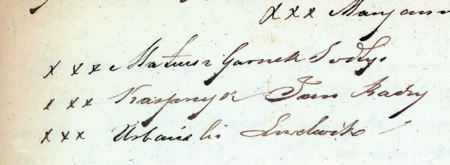 xxx Maryann
xxx Mateusz Garnek Sołtys
xxx Kasprzyk Jan Radny
xxx Urbański Ludwik